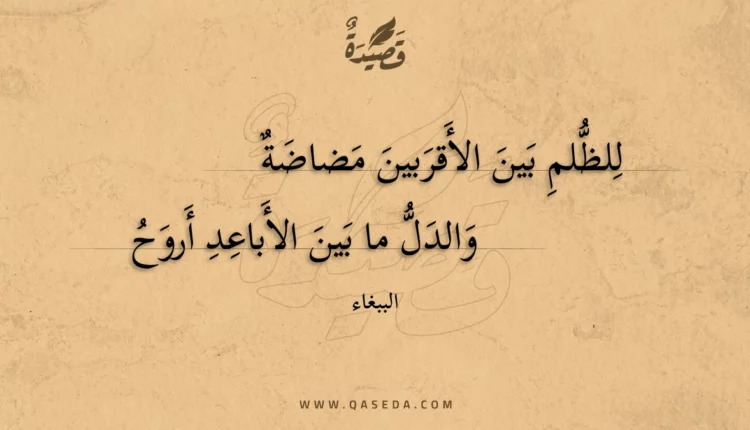 قَصِيْدَةٌ
لِلظُّلمِ بَينَ الأَقرَبينَ مَضاضَةٌ
وَالدَلُّ ما بَينَ الأَباعِدِ أَروَحُ
الببغاء
WWW.QASEDA.COM